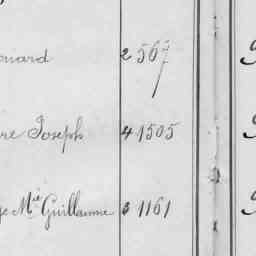 ouard 2 567
re Joseph 4 1505
e Mie Guillaume 6 1161